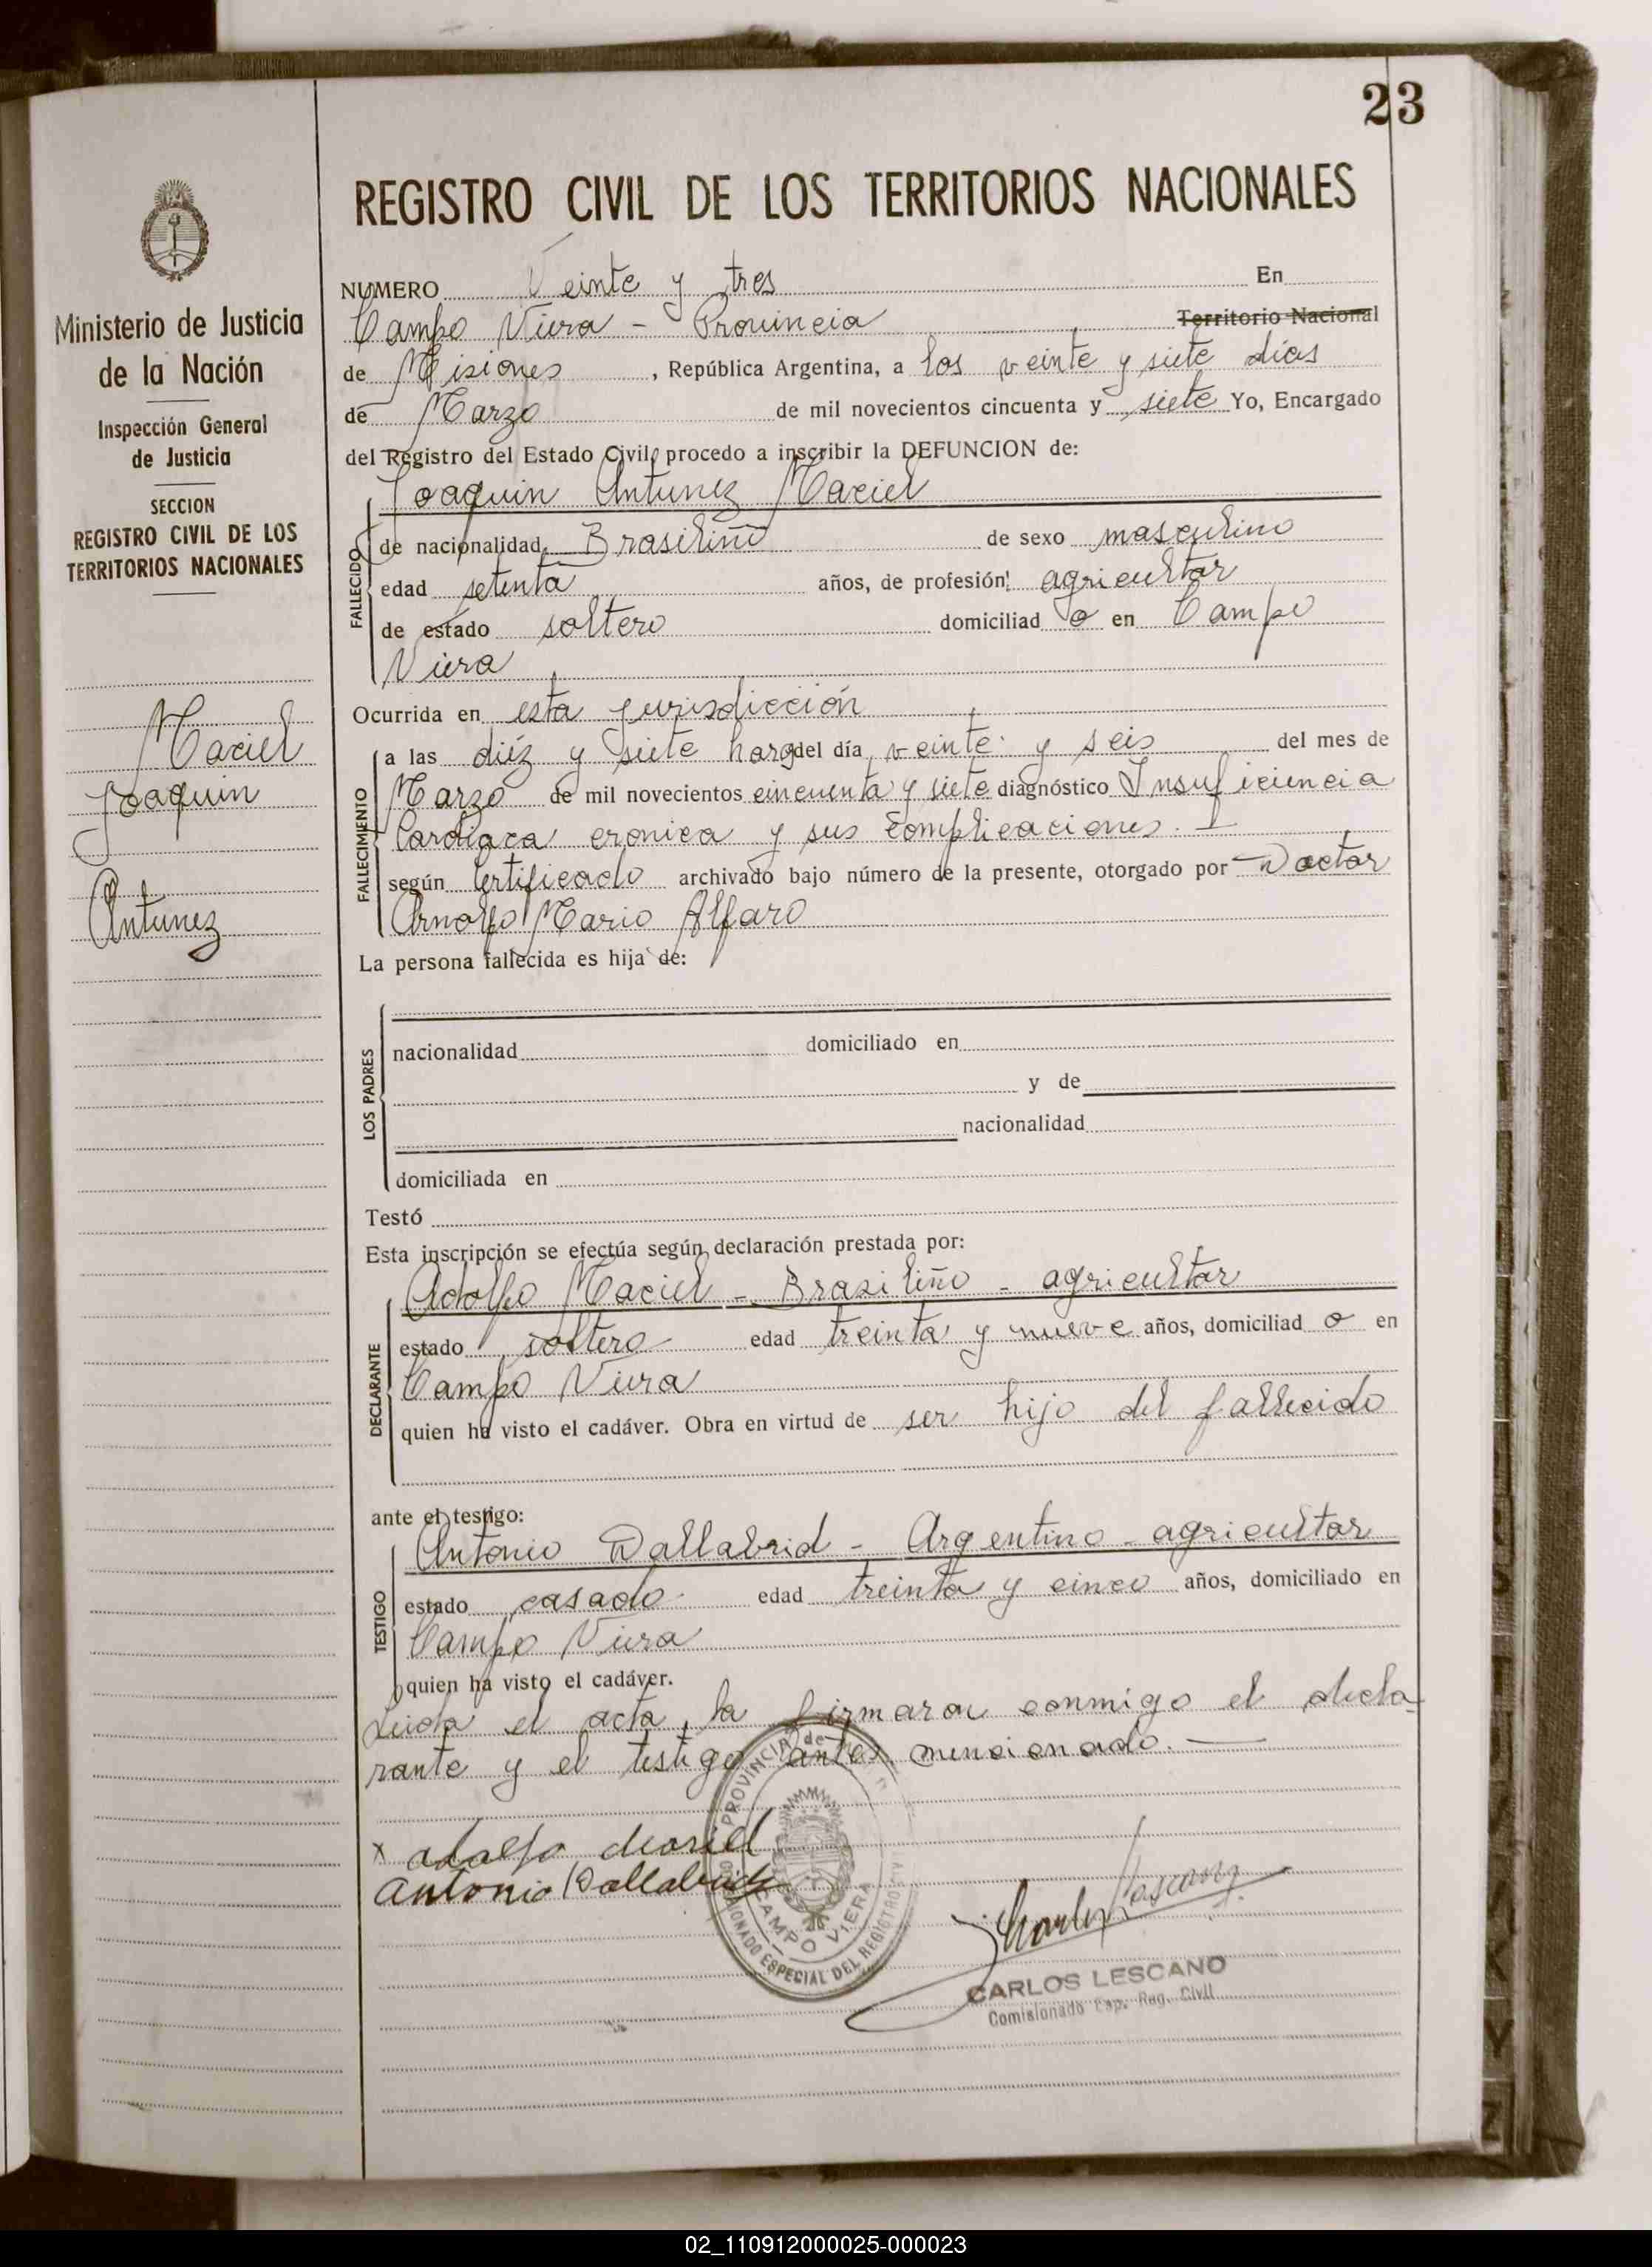 23
REGISTRO CIVIL DE LOS TERRITORIOS NACIONALES
Ministerio de Justicia
de la Nación
Inspección General
de Justicia
SECCION
REGISTRO CIVIL DE LOS
TERRITORIOS NACIONALES
Maciel
Joaquin
Antunez
NUMERO Veinte y tres En
Campo Viera - Provincia Territorio Nacional
de Misiones, República Argentina, a los veinte y siete días
de Marzo de mil novecientos cincuenta y siete Yo, Encargado
del Registro del Estado Civil, procedo a inscribir la DEFUNCION de:
FALLECIDO
Joaquin Antunez Maciel
de nacionalidad Brasiliño de sexo masculino
edad setenta años, de profesión agricultor
de estado soltero domiciliad o en Campo
Viera
Ocurrida en esta jurisdicción
FALLECIMIENTO
a las diéz y siete horas del día veinte y seis del mes de
Marzo de mil novecientos cincuenta y siete diagnóstico Insuficiencia
Cardiaca cronica y sus complicaciones.
según Certificado archivado bajo número de la presente, otorgado por Doctor
Arnolfo Mario Alfaro
La persona fallecida es hija de:
LOS PADRES
nacionalidad domiciliado en
y de
nacionalidad
domiciliada en
Testó
Esta inscripción se efectúa según declaración prestada por:
DECLARANTE
Adolfo Maciel - Brasiliño - agricultor
estado soltero edad treinta y nueve años, domiciliad o en
Campo Viera
quien ha visto el cadáver. Obra en virtud de ser hijo del fallecido
ante el testigo:
TESTIGO
Antonio Dallabrid - Argentino - agricultor
estado casado edad treinta y cinco años, domiciliado en
Campo Viera
quien ha visto el cadáver.
Leida el acta, la firmaron conmigo el decla-
rante y el testigo antes mencionado.
PROVINCIA de
CAMPO VIERA
ESPECIAL DEL REGISTRO
x adolfo
Antonio Dallabrid
CARLOS LESCANO
Comisionado Esp. Reg. Civil
02_110912000025-000023